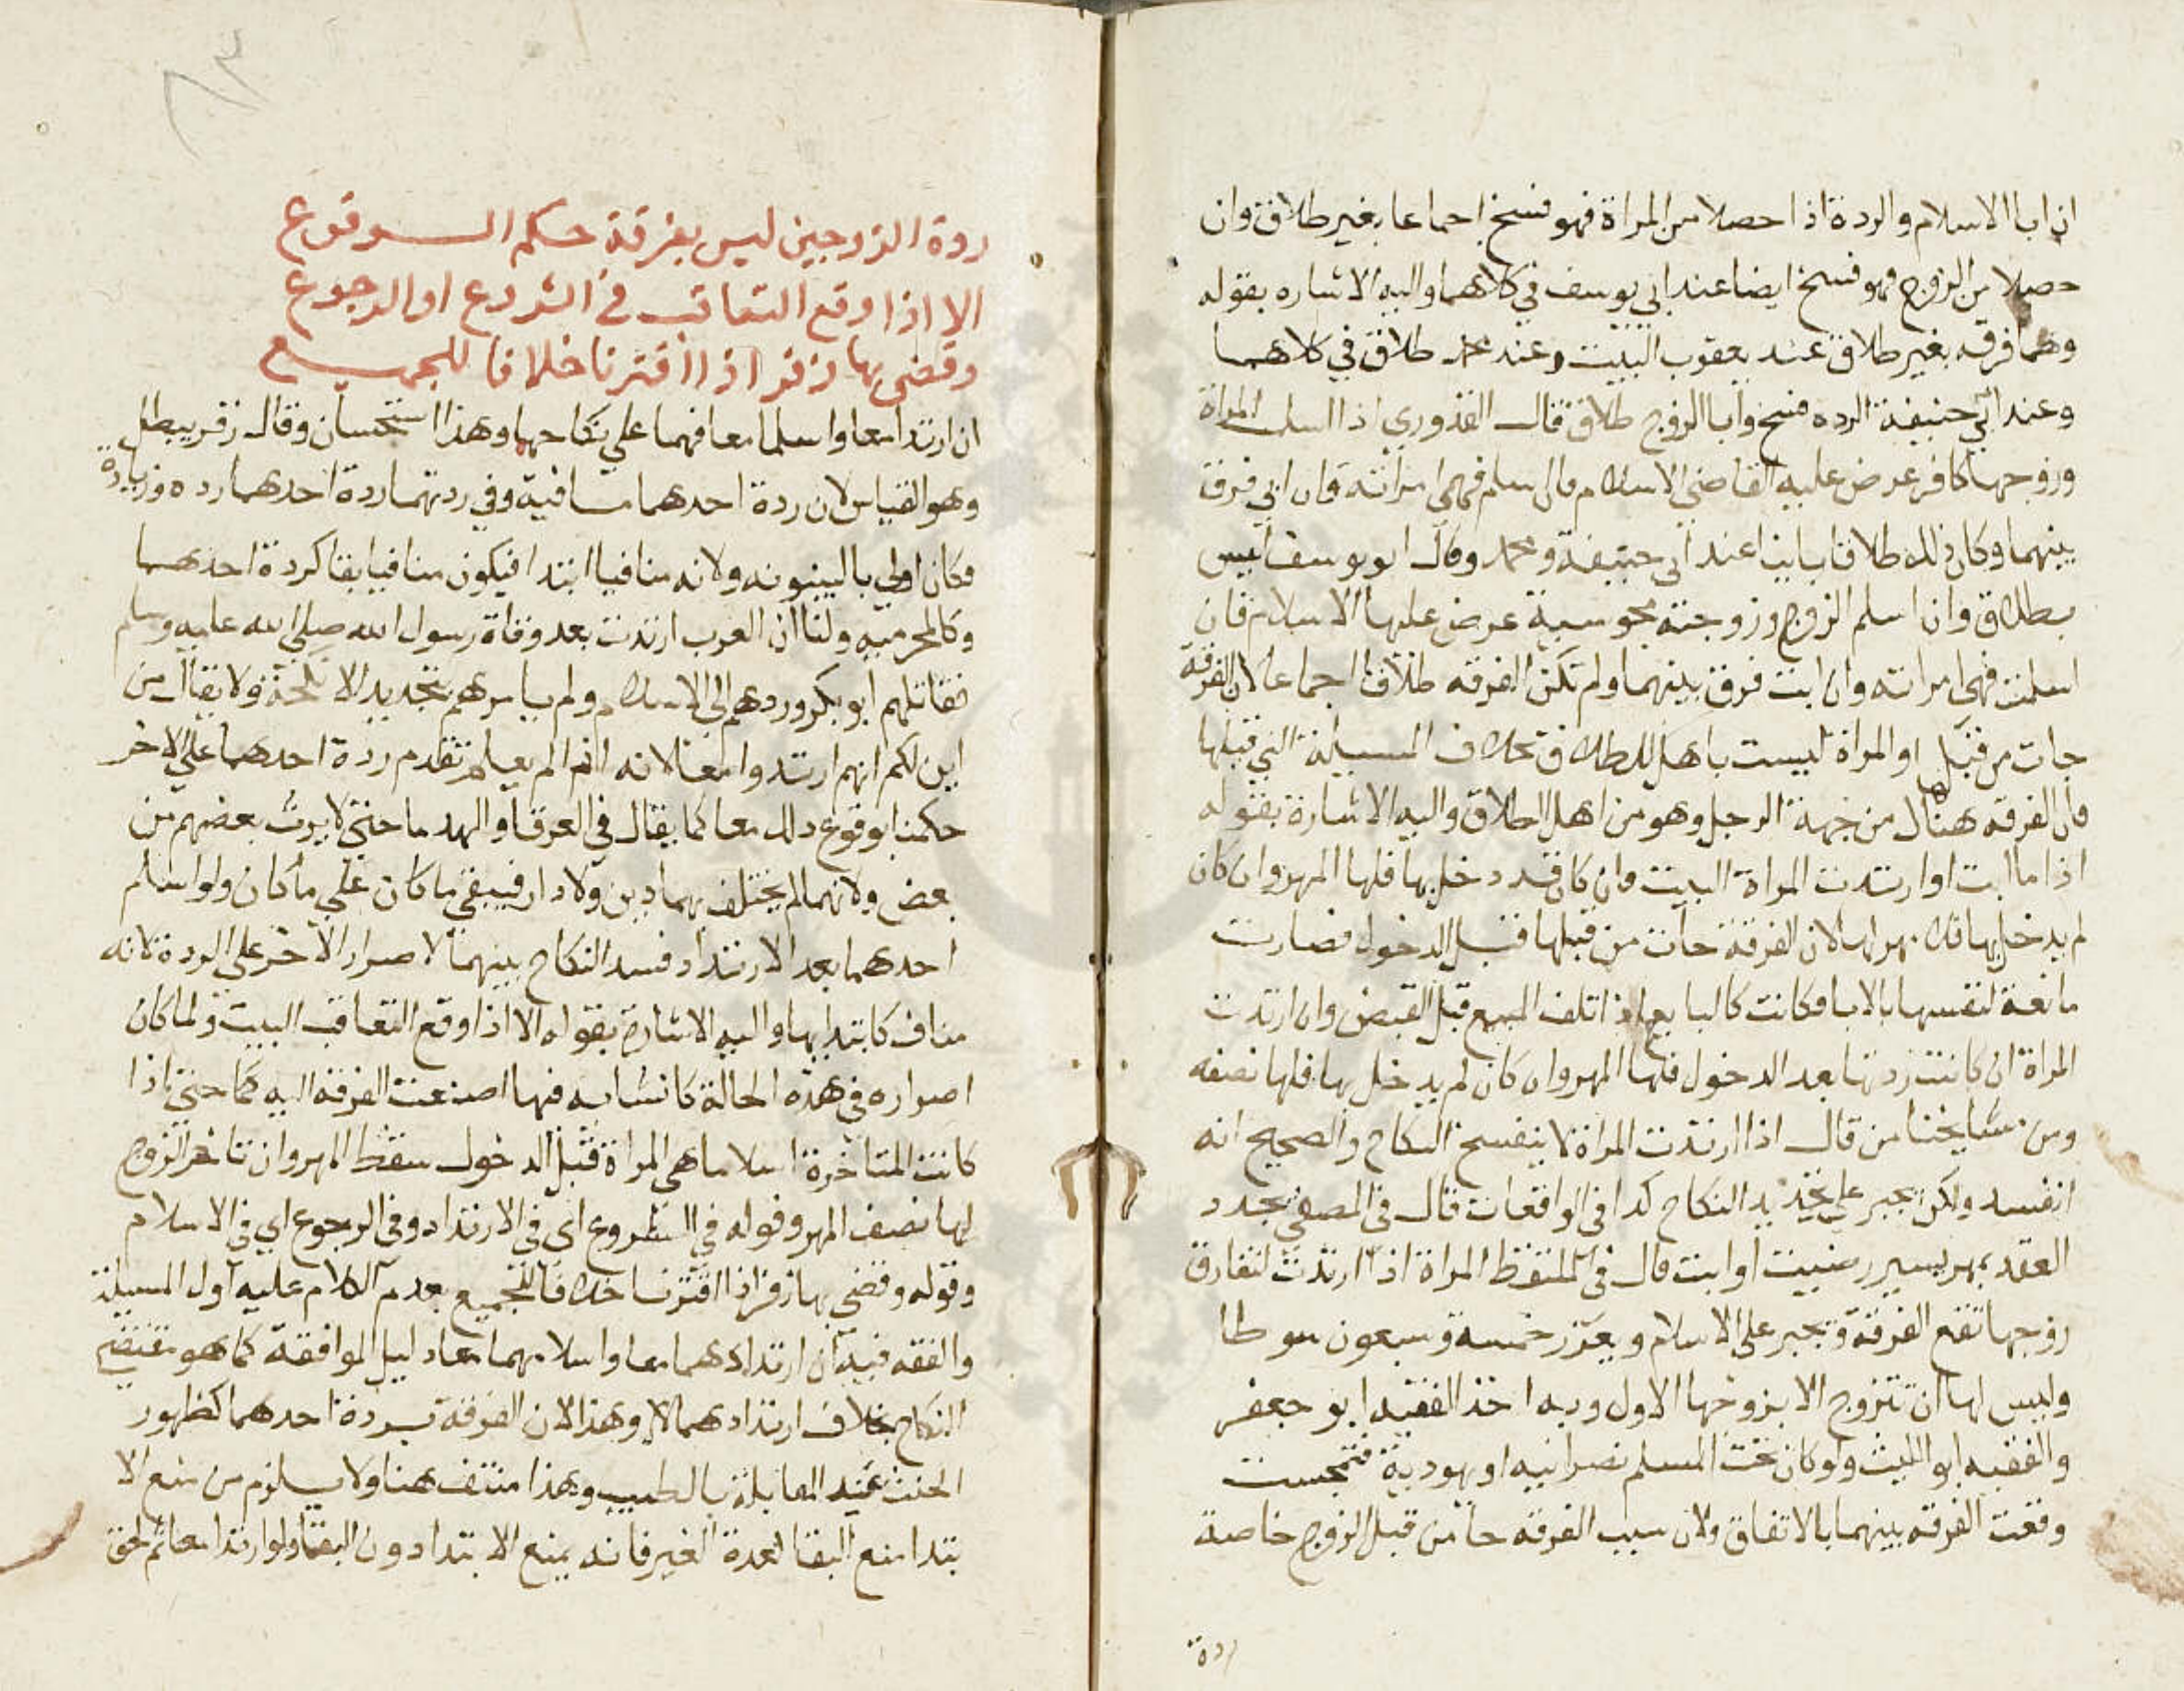 ان ابا الاسلام والردة اذا حصلا من المراة فهو فسخ اجماعا بغير طلاق وان
حصلا من الزوج فهو فسخ ايضا عند ابي يوسف في كلاهما واليه الاشاره بقوله
وهما فرقه بغير طلاق عند يعقوب البيت وعند محمد طلاق في كلاهما
وعند ابي حنيفة الرده فسخ وابا الزوج طلاق قال القدوري اذا اسلمت المراة
وزوجها كافر عرض عليه القاضي الاسلام فان اسلم فهي امراته وان ابي فرق
بينهما وكان ذلك طلاقا باينا عند ابي حنيفة ومحمد وقال ابو يوسف ليس
بطلاق وان اسلم الزوج وزوجته مجوسية عرض عليها الاسلام فان
اسلمت فهي امراته وان ابت فرق بينهما ولم تكن الفرقه طلاقا اجماعا لان الفرقة
جات من قبلها والمراة ليست باهل للطلاق بخلاف المسيلة التي قبلها
فان الفرقه هناك من جهة الرجل وهو من اهل الطلاق واليه الاشارة بقوله
اذا ما ابت او ارتدت المراة البيت وان كان قد دخل بها فلها المهر وان كان
لم يدخل بها فلا مهر لها لان الفرقة جات من قبلها قبل الدخول فصارت
مانعة لنفسها بالابا فكانت كالبايع اذا اتلف المبيع قبل القبض وان ارتدت
المراة ان كانت ردتها بعد الدخول فلها المهر وان كان لم يدخل بها فلها نصفه
ومن مشايخنا من قال اذا ارتدت المراة لا ينفسخ النكاح والصحيح انه
انفسد ولكن تجبر علي تجديد النكاح كذا في الواقعات قال في المصفي يجدد
العقد بمهر يسير رضيت او ابت قال في الملتقط المراة اذا ارتدت لتفارق
زوجها تقع الفرقة وتجبر على الاسلام ويعزر خمسة وسبعون سوطا
وليس لها ان تتزوج الا بزوجها الاول وبه اخذ الفقيه ابو جعفر
والفقيه ابو الليث ولو كان تحت المسلم نصرانيه او يهودية فتمجست
وقعت الفرقه بينهما بالاتفاق ولان سبب الفرقه جا من قبل الزوج خاصة
ردة
ردة الزوجين ليس بفرقة حكم الوقوع
الا اذا وقع التعاقب في الشروع او الرجوع
وقضى بها زفر اذا اقترنا خلافا للجميع
ان ارتدا معا واسلما معا فهما علي نكاحهما وهذا استحسان وقال زفر يبطل
وهو القياس لان ردة احدهما منافية وفي ردتهما ردة احدهما رده وزيادة
فكان اولي بالبينونه ولانه منافيا ابتدا فيكون منافيا بقا كردة احدهما
وكالمحرميه ولنا ان العرب ارتدت بعد وفاة رسول الله صلي الله عليه وسلم
فقاتلهم ابو بكر وردهم الي الاسلام ولم يامرهم بتجديد الانكحة ولا يقال من
اين لكم انهم ارتدوا معا لانه انه لم يعلم تقدم ردة احدهما علي الاخر
حكمنا بوقوع ذلك معا كما يقال في الغرقا والهدما حتي لا يرث بعضهم من
بعض ولانهما لم يختلف بهما دين ولا دار فيبقي ما كان علي ما كان ولو اسلم
احدهما بعد الارتداد فسد النكاح بينهما لاصرار الاخر علي الردة لانه
مناف كابتدايها واليه الاشارة بقوله الا اذا وقع التعاقب البيت ولما كان
اصراره في هذه الحالة كانشايه فيها اضيفت الفرقة اليه كما حتي اذا
كانت المتاخرة اسلاما هي المراة قبل الدخول سقط المهر وان تاخر الزوج
لها نصف المهر وقوله في الشروع اي في الارتداد وفي الرجوع اي في الاسلام
وقوله وقضي بها زفر اذا اقترنا خلافا للجميع بعدم الكلام عليه اول المسيلة
والفقه فيه ان ارتدادهما معا واسلامهما معا دليل الموافقة كما هو مقتضي
النكاح بخلاف ارتدادهما لا وهذا لان الفرقة بردة احدهما لظهور
الخبث عند المقابلة بالطيب وهذا منتف هنا ولا يلزم من منع الا
بتدا منع البقا لعدة الغير فانه يمنع الابتدا دون البقا ولو ارتدا معا ثم لحق